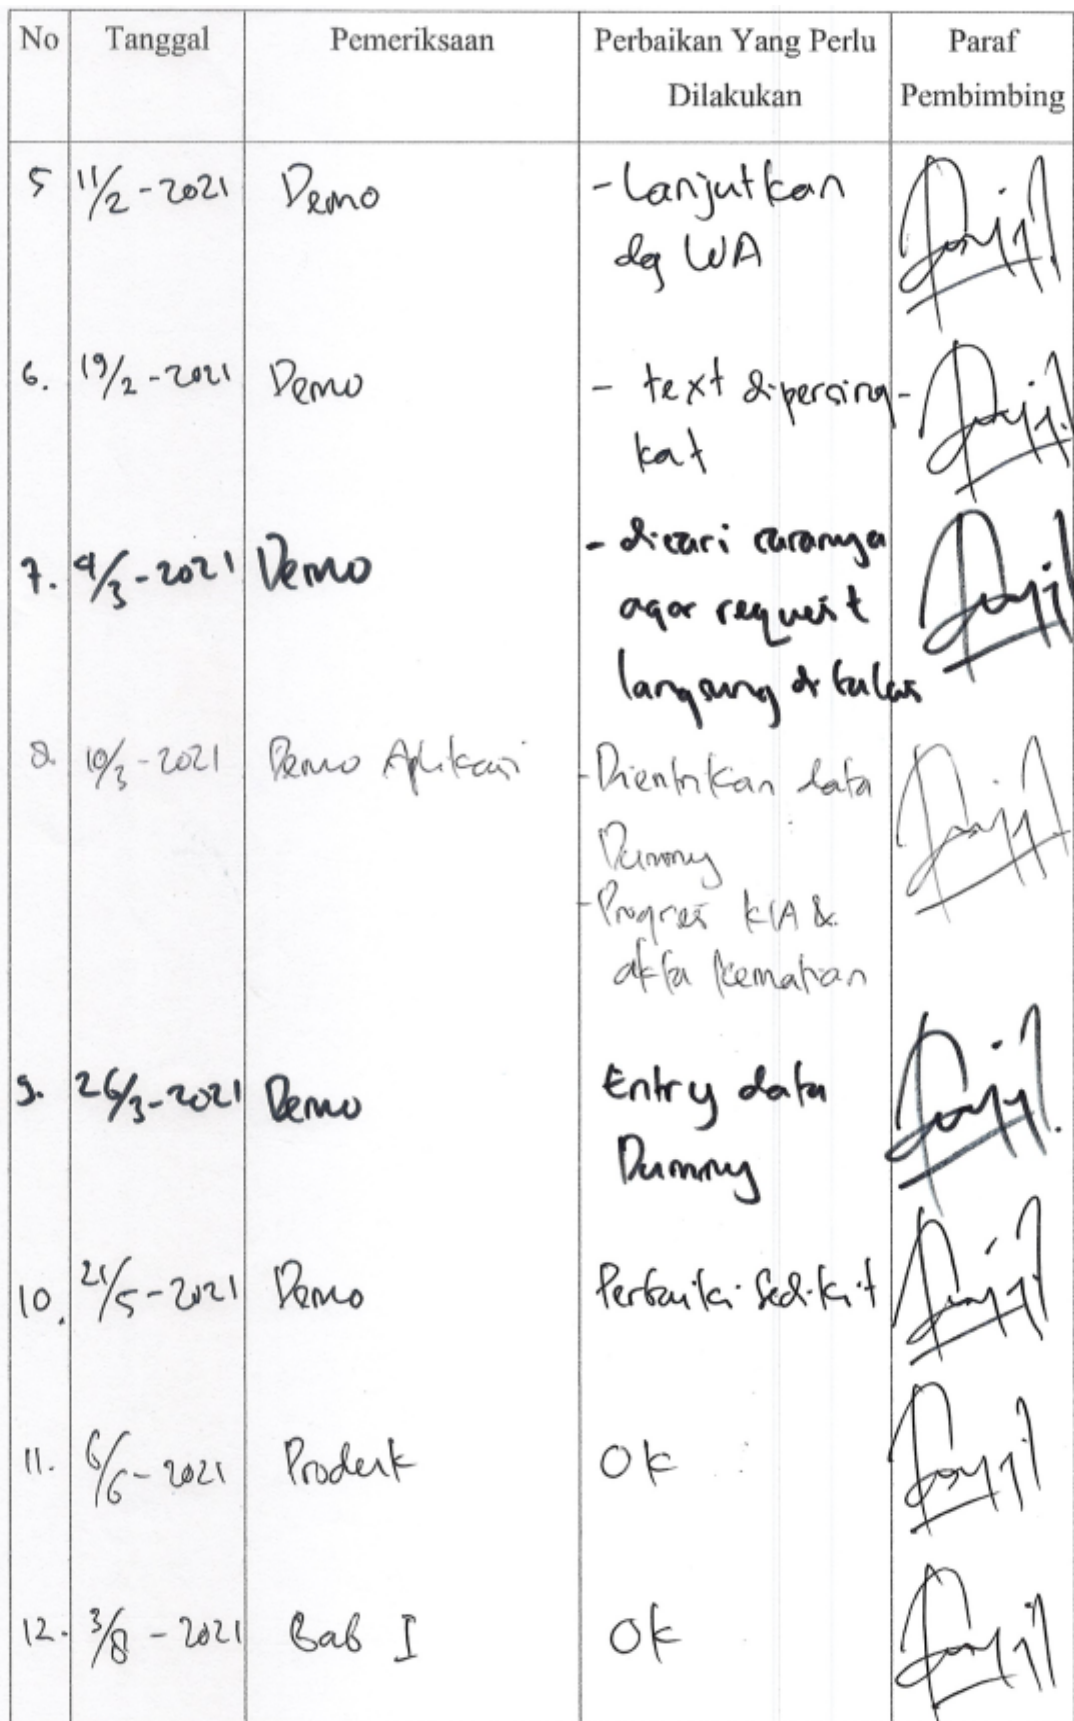 No Tanggal Pemeriksaan Perbaikan Yang Perlu Paraf
Dilakukan Pembimbing
5 11/2 - 2021 Demo - Lanjutkan
dg WA
6. 19/2 - 2021 Demo - text dipersing-
kat
7. 4/3 - 2021 Demo - dicari caranya
agar request
langsung di balas
8. 10/3 - 2021 Demo Aplikasi - Dientrikan data
Dummy
- Progres KIA &
akta kematian
9. 26/3 - 2021 Demo Entry data
Dummy
10. 21/5 - 2021 Demo Perbaiki sedikit
11. 6/6 - 2021 Produk Ok
12. 3/8 - 2021 Bab I Ok